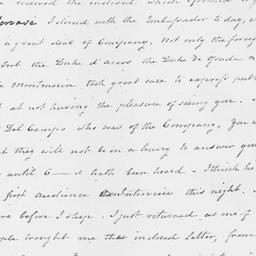 received the inclosed which
I dined with the Embassador to day, w
a great deal of Company, Not only the foreig
but the Duke d'
Montmorin, took great care to express pub
t at not having the pleasure of seeing you.
Del Campo who was of the Company, you
t they will not be in a hurry to answer you
until C—d hath been heard — I think he
first audience Interview this night.
ore before I sleep. I just returned, as one of
ple brought me that inclosed Letter, from